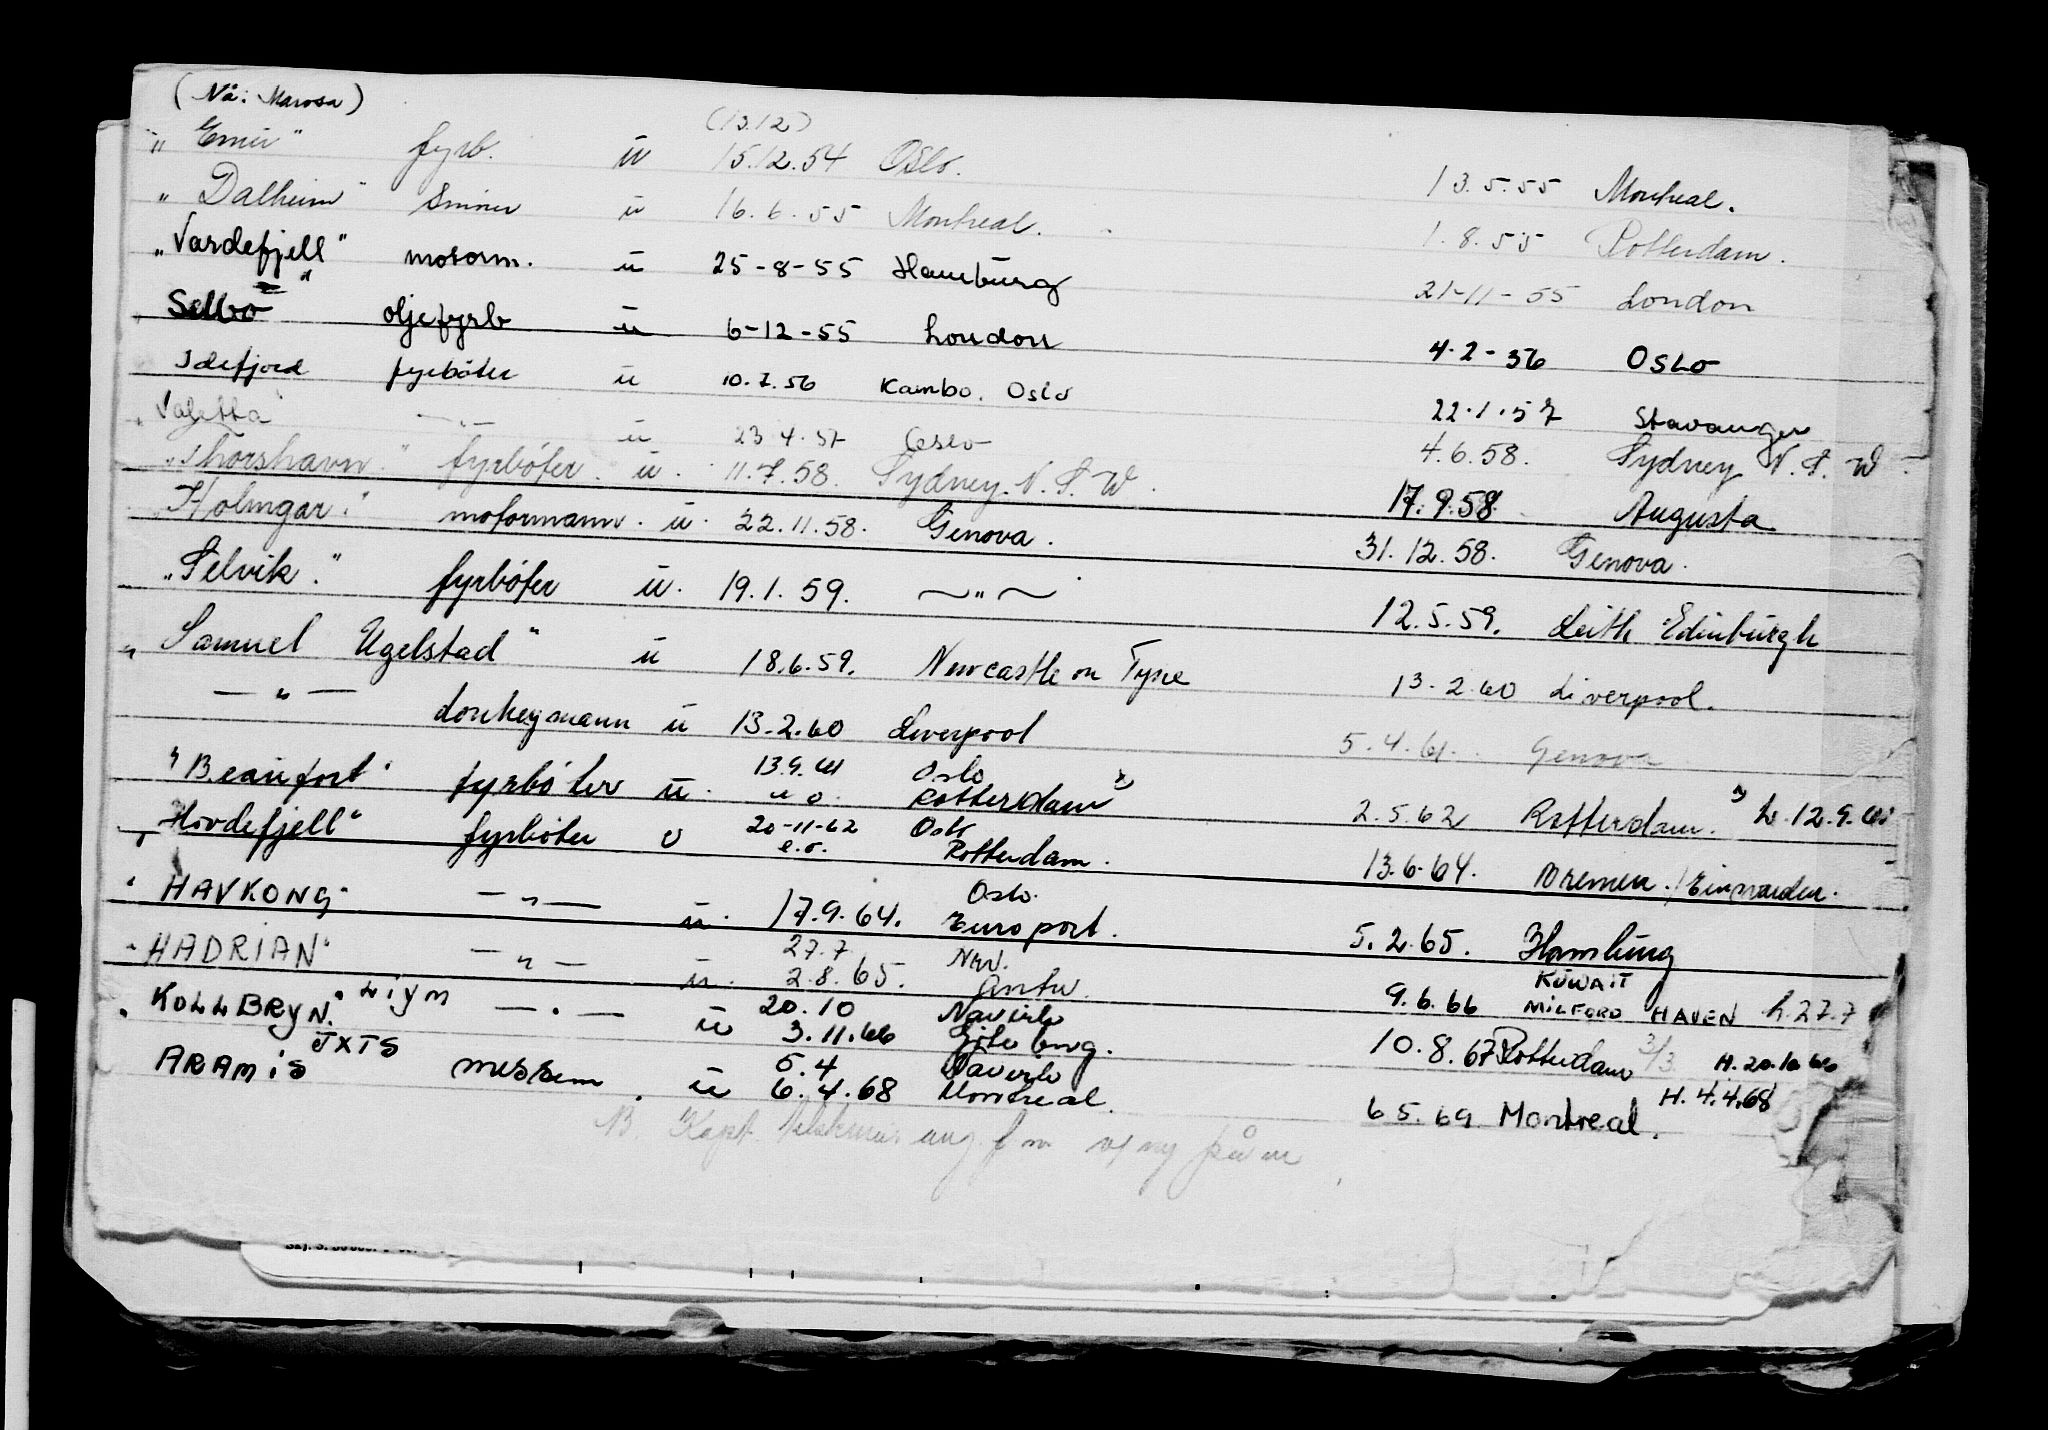 (Nå: Marosa)
"Emir" fyrb. u (13.12) 15.12.54 Oslo. 13.5.55 Montreal.
"Dalheim" Smører u 16.6.55 Montreal. 1.8.55 Rotterdam.
"Vardefjell" motorm. u 25-8-55 Hamburg 21-11-55 London
Selbo" oljefyrb u 6-12-55 London 4-2-56 Oslo
Idefjord fyrbøter u 10.7.56 Kambo. Oslo 22.1.57 Stavanger
"Valetta" —"— u 23.4.57 Oslo 4.6.58. Sydney N.S.W.
"Thorshavn." fyrbøter. u. 11.7.58. Sydney. N.S.W. 17.9.58. Augusta
"Holmgar." motormann. u. 22.11.58. Genova. 31.12.58. Genova.
"Selvik." fyrbøter u. 19.1.59. —"— 12.5.59. Leith Edinburgh
"Samuel Ugelstad" u 18.6.59. Newcastle on Tyne 13.2.60 Liverpool.
—"— donkeymann u 13.2.60 Liverpool 5.4.61. Genova
13.9.61 Oslo
"Beaufort" fyrbøter u. u o. Rotterdam" 2.5.62 Rotterdam. h. 12.9.61
20-11-62 Oslo
"Hovdefjell" fyrbøter u e.o. Rotterdam. 13.6.64. Bremen.
Oslo.
"HAVKONG" —"— u. 17.9.64. Europort. 5.2.65. Hamburg
27.7 Nrv. KUWAIT
"HADRIAN" —"— u. 2.8.65. Antw. 9.6.66 MILFORD HAVEN h.27.7
20.10 Narvik
"KOLLBRYN." LIYM —"— u 3.11.66 Gøteborg. 10.8.67 Rotterdam 3/3. H.20.10.66
JXTS 5.4 H.4.4.68
ARAMIS messem. u 6.4.68 Montreal. 6.5.69 Montreal.
NB. Kapt. ang. f m v/ ny